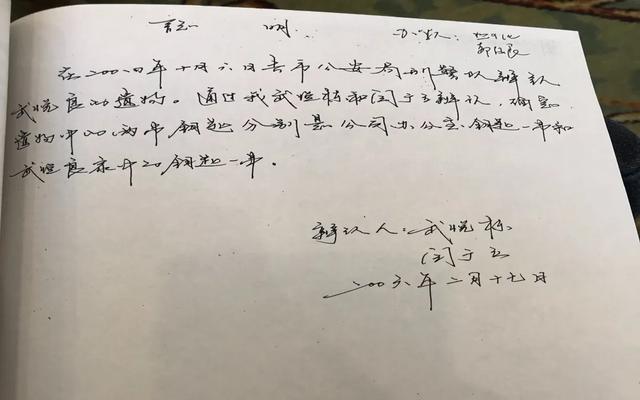 证 明
在二〇〇四年十月六日去市公安局刑警队辨认
武悦良的遗物。通过我武悦栋和闵于玉辨认，确是
遗物中的两串钥匙分别是公司办公室钥匙一串和
武悦良家中的钥匙一串。
辨认人：武悦栋
闵于玉
二00六年二月十七日